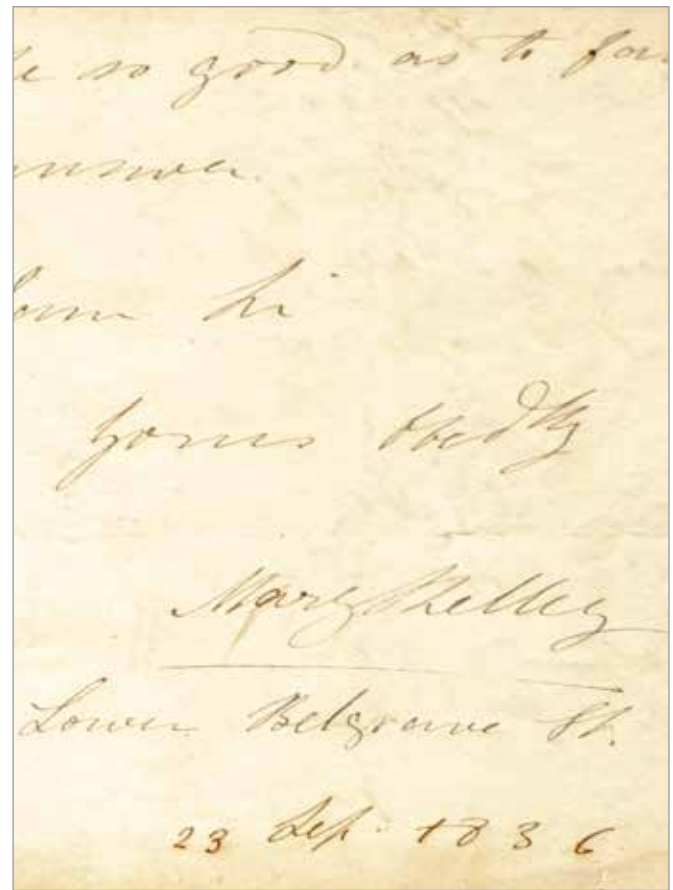 e so good as to fa
answer.
Yours obedtly
Mary Shelley
Lower Belgrave St.
23 Sep. 1836